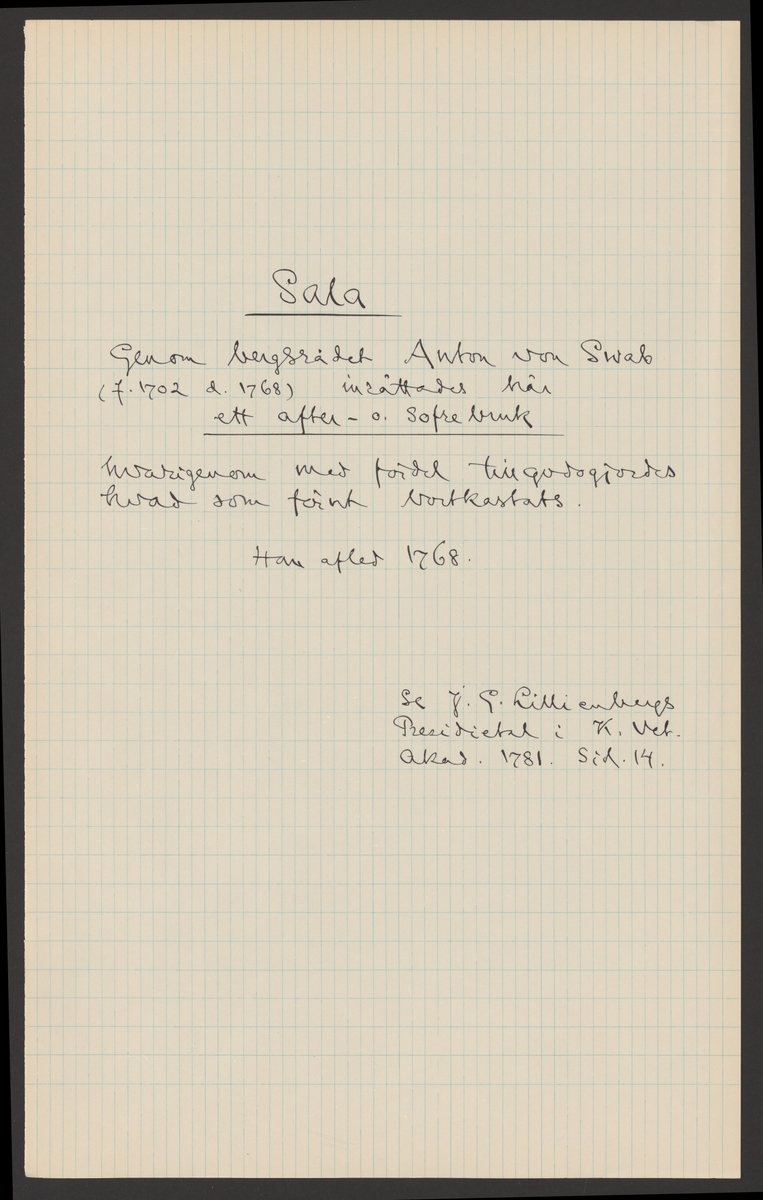 Sala
Genom bergsrådet Anton von Swab
(f. 1702 d. 1768) inrättades här
ett after- o. Sofrebruk
hvarigenom med fördel tillgodogjordes
hvad som förut bortkastats.
Han afled 1768.
Se J. G. Lillienbergs
Presidietal i K. Vet.
Akad. 1781. Sid. 14.